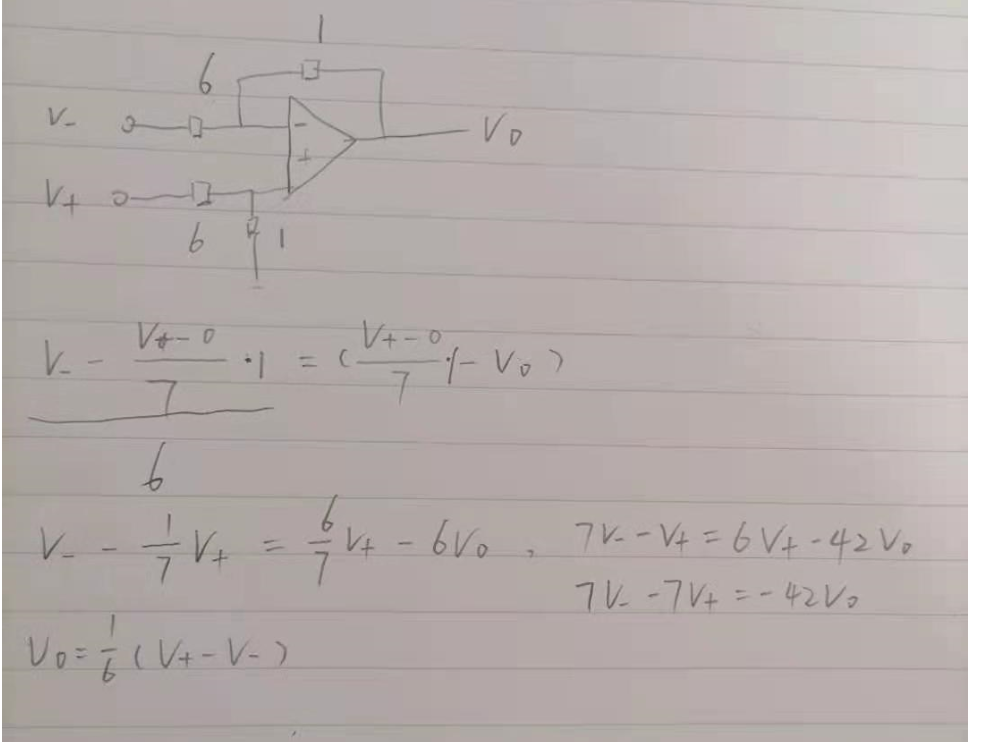 1
6
V- - V0
V+ +
6 1
V- - (V+ - 0)/7 · 1 / 6 = ( (V+ - 0)/7 · 1 - V0 )
V- - 1/7 V+ = 6/7 V+ - 6V0 , 7V- - V+ = 6V+ - 42V0
7V- - 7V+ = -42V0
V0 = 1/6 ( V+ - V- )